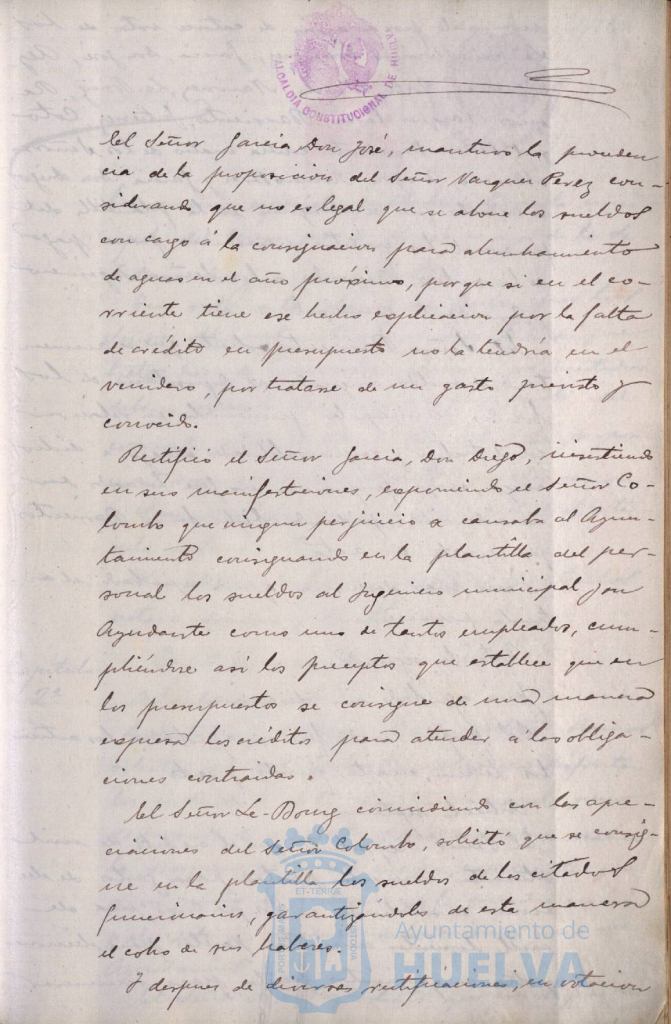 ALCALDIA CONSTITUCIONAL DE HUELVA
El Señor Garcia Don José, mantuvo la proceden
cia de la proposicion del Señor Vazquez Perez con-
siderando que no es legal que se abone los sueldos
con cargo á la consignacion para alumbramiento
de aguas en el año próximo, porque si en el co-
rriente tiene ese hecho explicacion por la falta
de crédito en presupuesto no la tendría en el
venidero, por tratarse de un gasto previsto y
conocido.
Rectificó el Señor Garcia, Don Diego, insistiendo
en sus manifestaciones, exponiendo el Señor Co-
lombo que ningun perjuicio se causaba al Ayun-
tamiento consignando en la plantilla del per-
sonal los sueldos al Ingeniero municipal y su
Ayudante como uno de tantos empleados, cum-
pliéndose así los preceptos que establece que en
los presupuestos se consigne de una manera
expresa los créditos para atender á las obliga-
ciones contraidas.
El Señor Le-Bourg coincidiendo con las apre-
ciaciones del Señor Colombo, solicitó que se consig-
ne en la plantilla los sueldos de los citados
funcionarios, garantizándoles de esta manera
el cobro de sus haberes.
Y despues de diversas rectificaciones, en votacion
Ayuntamiento de
HUELVA